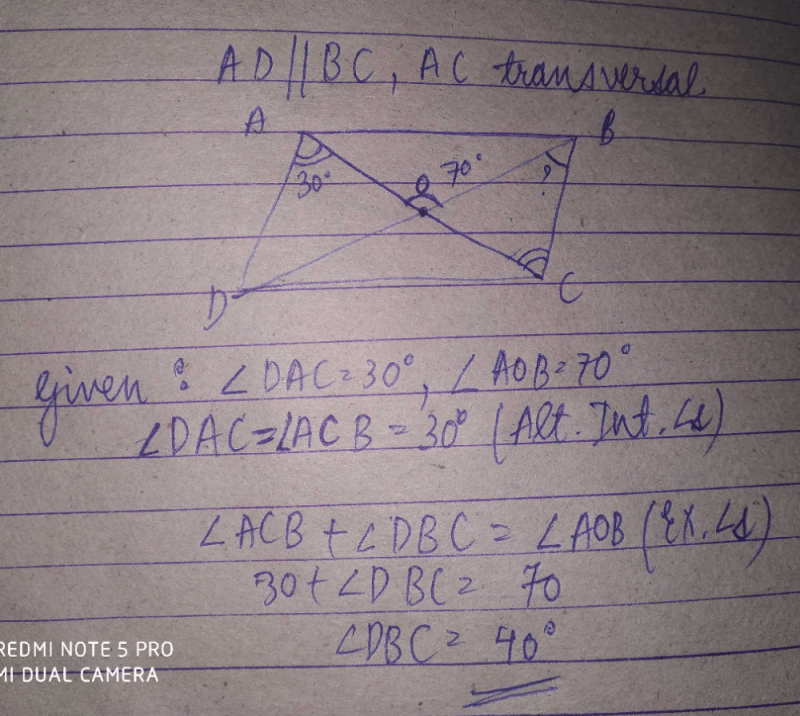 AD||BC, AC transversal
A
B
30°
O
70°
?
D
C
Given : ∠DAC = 30°, ∠AOB = 70°
∠DAC = ∠ACB = 30° (Alt. Int. ∠s)
∠ACB + ∠DBC = ∠AOB (Ex. ∠s)
30 + ∠DBC = 70
∠DBC = 40°
REDMI NOTE 5 PRO
MI DUAL CAMERA